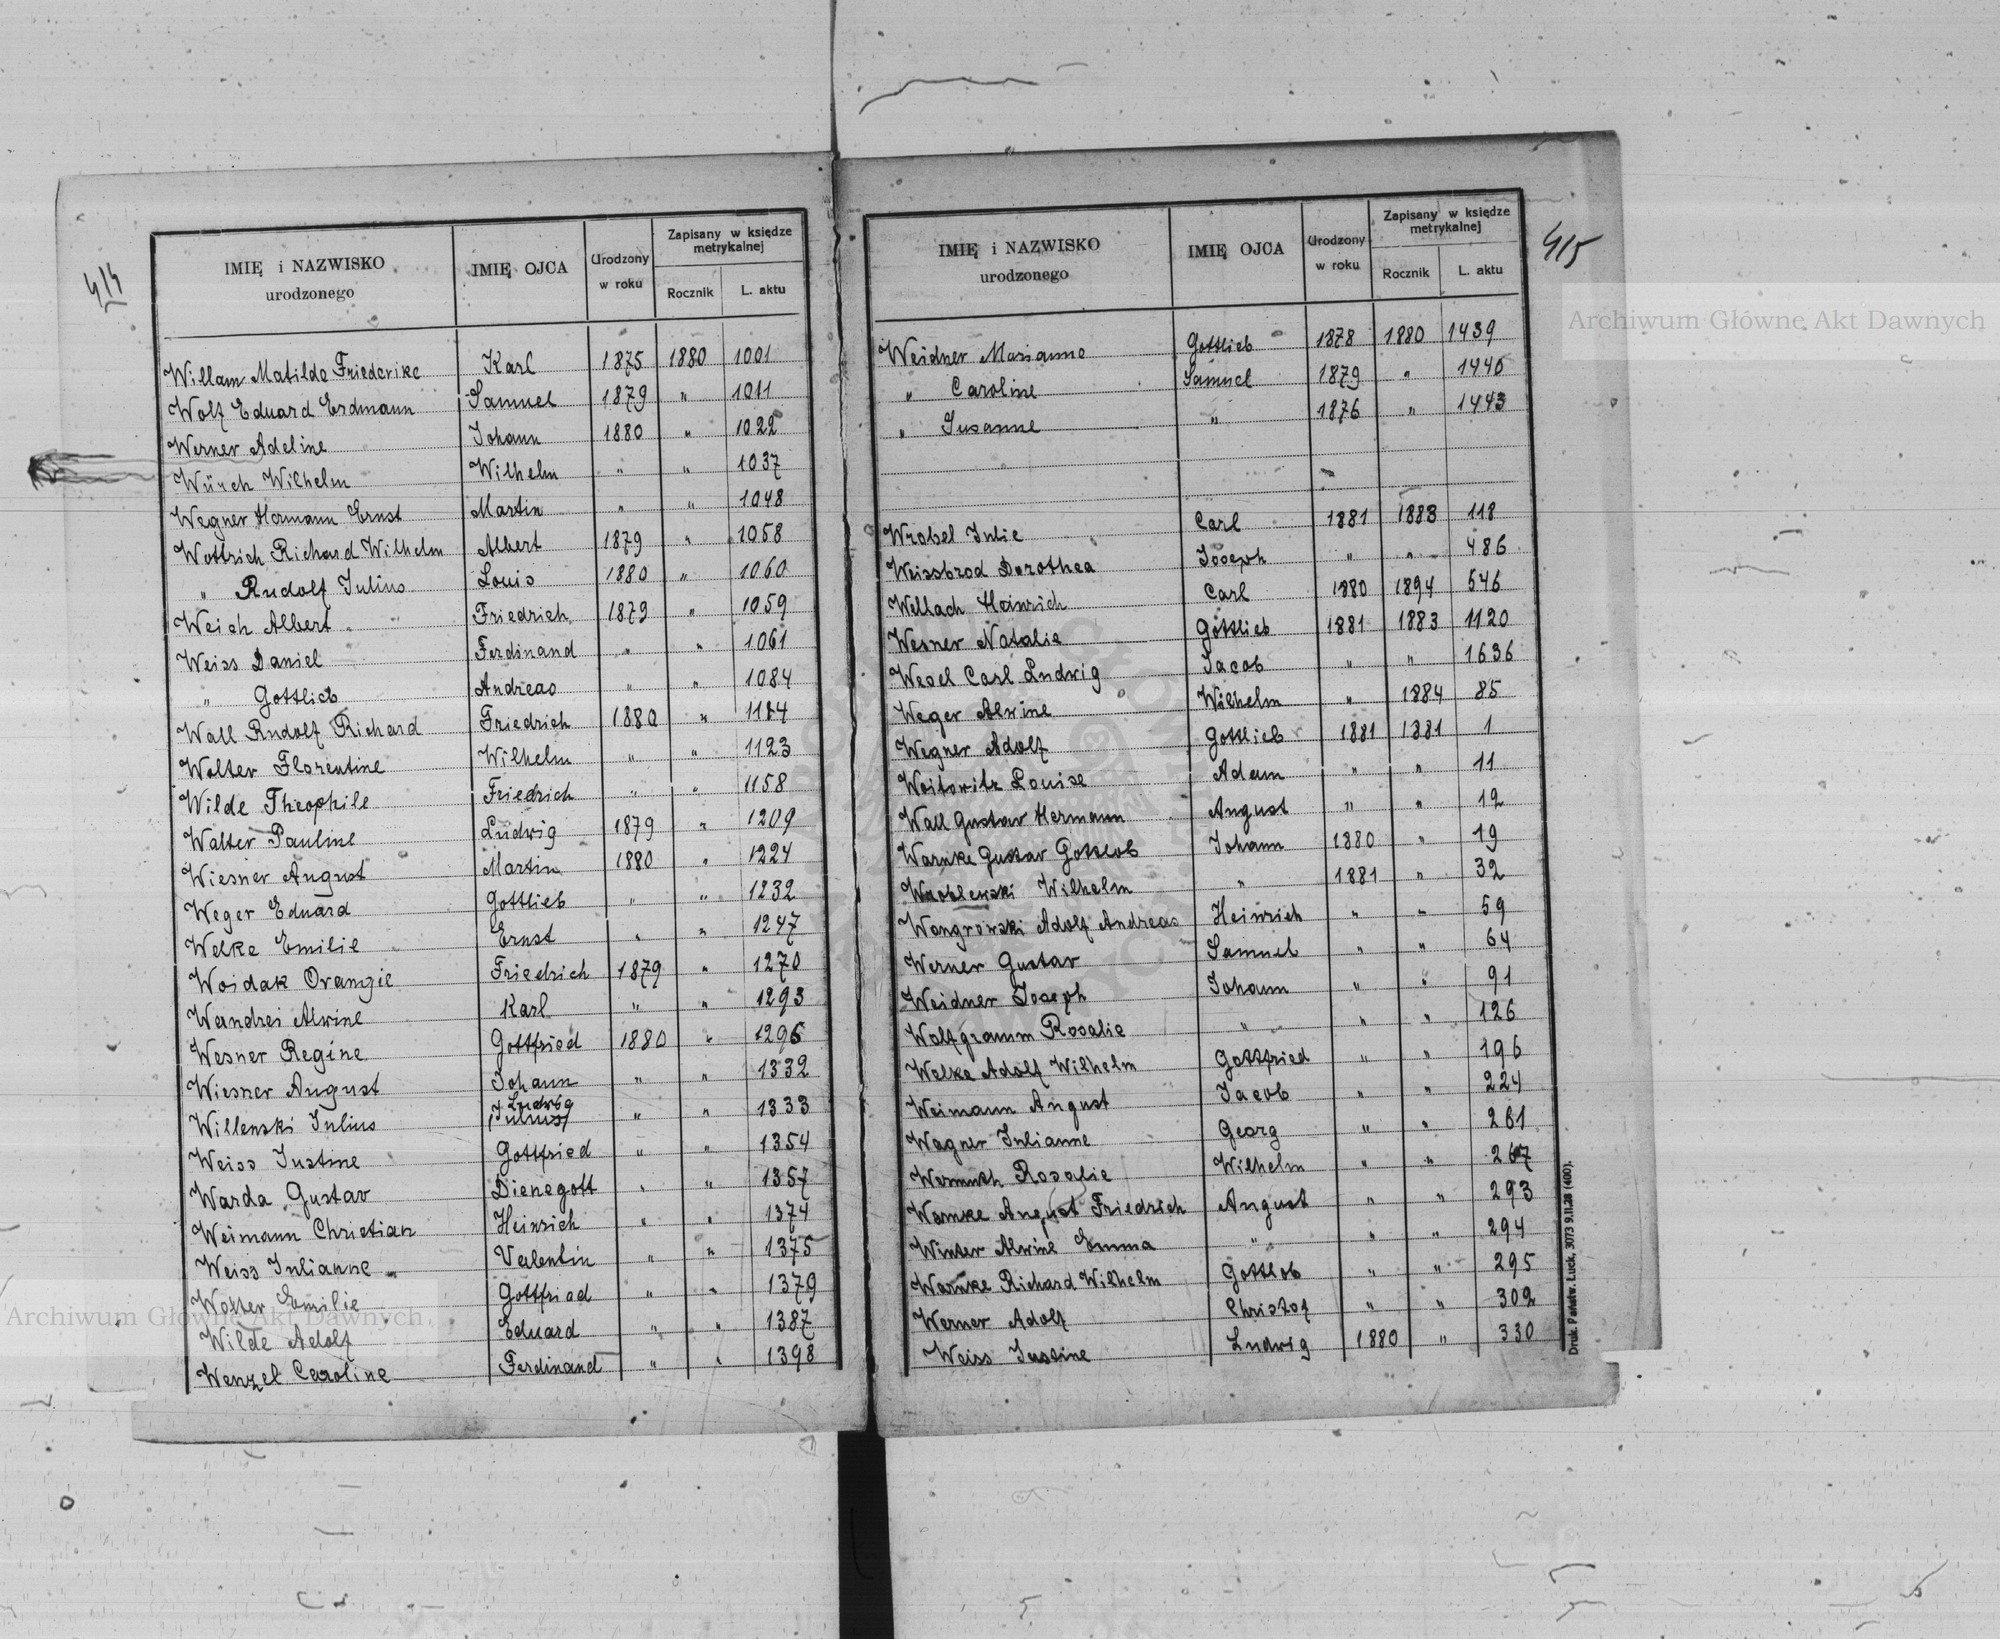 414
IMIĘ i NAZWISKO urodzonego | IMIĘ OJCA | Urodzony w roku | Zapisany w księdze metrykalnej | Rocznik | L. aktu
Willam Matilde Friederike Karl 1875 1880 1001
Wolf Eduard Erdmann Samuel 1879 " 1011
Werner Adeline Johann 1880 " 1022
Wilhelm Wilhelm " " 1037
Wegner Hermann Ernst Martin " " 1048
Wottrich Richard Wilhelm Albert 1879 " 1058
" Rudolf Julius Louis 1880 " 1060
Weich Albert Friedrich 1879 " 1059
Weiss Daniel Ferdinand " " 1061
" Gottlieb Andreas " " 1084
Wall Rudolf Richard Friedrich 1880 " 1124
Wolter Florentine Wilhelm " " 1123
Wilde Theophile Friedrich " " 1158
Walter Pauline Ludwig 1879 " 1209
Wiesner August Martin 1880 " 1224
Weger Eduard Gottlieb " " 1232
Welke Emilie Ernst " " 1247
Woidak Orangie Friedrich 1879 " 1270
Wendrei Alwine Karl " " 1293
Wesner Regine Gottfried 1880 " 1296
Wiesner August Johann " " 1332
Willenski Julius Ludwig (Julius) " " 1333
Weiss Justine Gottfried " " 1354
Warda Gustav Dienegott " " 1357
Weimann Christian Heinrich " " 1374
Weiss Julianne Valentin " " 1375
Wolter Emilie Gottfriad " " 1379
Wilde Adolf Eduard " " 1387
Wenzel Caroline Ferdinand " " 1398
415
IMIĘ i NAZWISKO urodzonego | IMIĘ OJCA | Urodzony w roku | Zapisany w księdze metrykalnej | Rocznik | L. aktu
Weidner Marianne Gottlieb 1878 1880 1439
" Caroline Samuel 1879 " 1440
" Susanne " 1876 " 1443
Wrobel Julie Carl 1881 1883 118
Weissbrod Dorothea Joseph " " 486
Wellach Heinrich Carl 1880 1894 546
Wesner Natalie Gottlieb 1881 1883 1120
Wesel Carl Ludwig Jacob " " 1636
Weger Alwine Wilhelm " 1884 85
Wegner Adolf Gottlieb 1881 1881 1
Woitowitz Louise Adam " " 11
Wall Gustav Hermann August " " 12
Warnke Gustav Gottlob Johann 1880 " 19
Wroblewski Wilhelm " 1881 " 32
Wongrowski Adolf Andreas Heinrich " " 59
Werner Gustav Samuel " " 64
Weidner Joseph Johann " " 91
Wolfgramm Rosalie " " " 126
Welke Adolf Wilhelm Gottfried " " 196
Weimann August Jacob " " 224
Wagner Julianne Georg " " 261
Wermuth Rosalie Wilhelm " " 267
Warnke August Friedrich August " " 293
Winter Alwine Emma " " " 294
Warnke Richard Wilhelm Gottlob " " 295
Werner Adolf Christof " " 302
Weiss Justine Ludwig 1880 " 330
Druk. Państw. Łuck, 3073 9.II.28 (400).
Archiwum Główne Akt Dawnych
Archiwum Główne Akt Dawnych